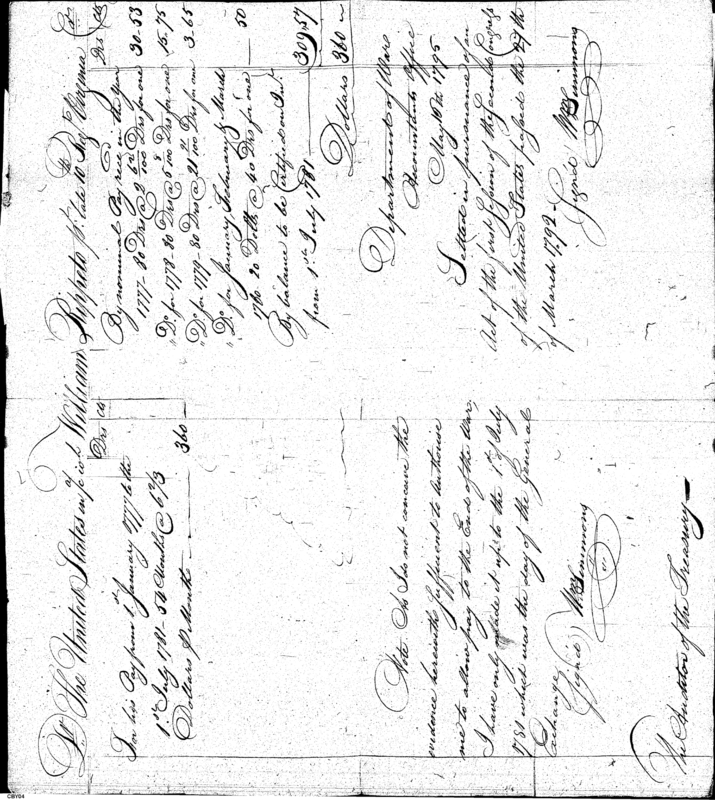 Dr. The United States in acct. with William Rippito pr. late 10 Reg Virginia Cr.
Drs cts
For his Pay from 1st January 1777 to the
1st July 1781 - 54 Months @ 6 2/3
Dollars pr Month 360
Drs cts
By nominal Pay recd in the Year
1777 - 80 Drs @ 2 62/100 Drs for one 30.53
Do. for 1778 - 80 Drs @ 5 8/100 Drs for one 15.75
Do. for 1779 - 80 Drs @ 21 21/100 Drs for one 3.65
Do. for January February & March
1780 - 20 Dolls @ 40 Drs for one - 50
By balance to be Certified on Int.
from 1st July 1781 309.57
Dollars 360
Note. As I do not conceive the
evidence herewith sufficient to authorise
me to allow pay to the End of the War,
I have only made it up to the 1st of July
1781 which was the day of the General
Exchange
Signed Wm Simmons
Department of War
Accountants Office
May 18th 1795
Settled in pursuance of an
Act of the first Session of the second Congress
of the United States passed the 27th
of March 1792 -
Signed Wm Simmons
The Auditor of the Treasury
CBY04